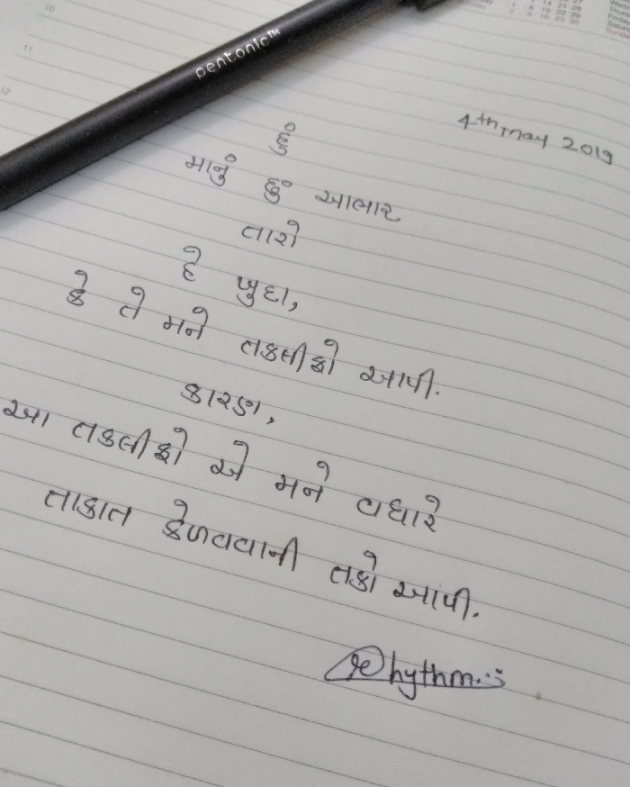 pentonic™
4th may 2019
હું
માનું છું આભાર
તારો
હે ખુદા,
કે તે મને તકલીફો આપી.
કારણ,
આ તકલીફો એ મને વધારે
તાકાત કેળવવાની તકો આપી.
Rhythm